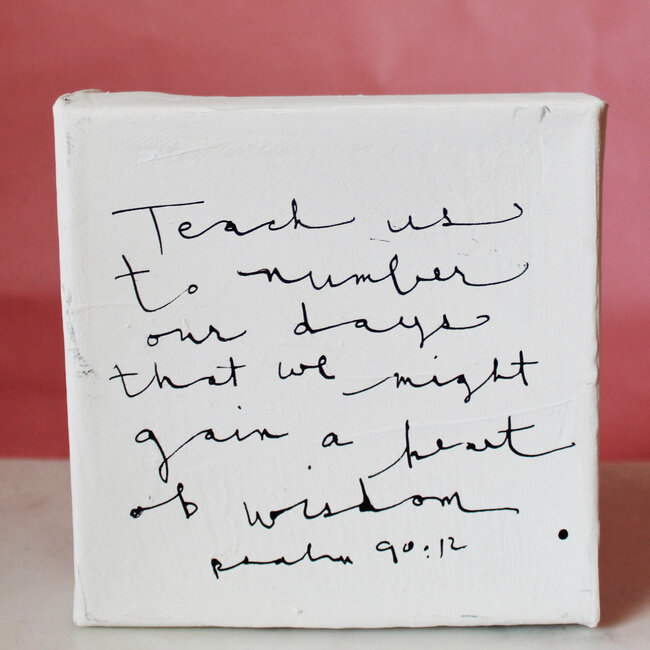 Teach us
to number
our days
that we might
gain a heart
of wisdom
psalm 90:12